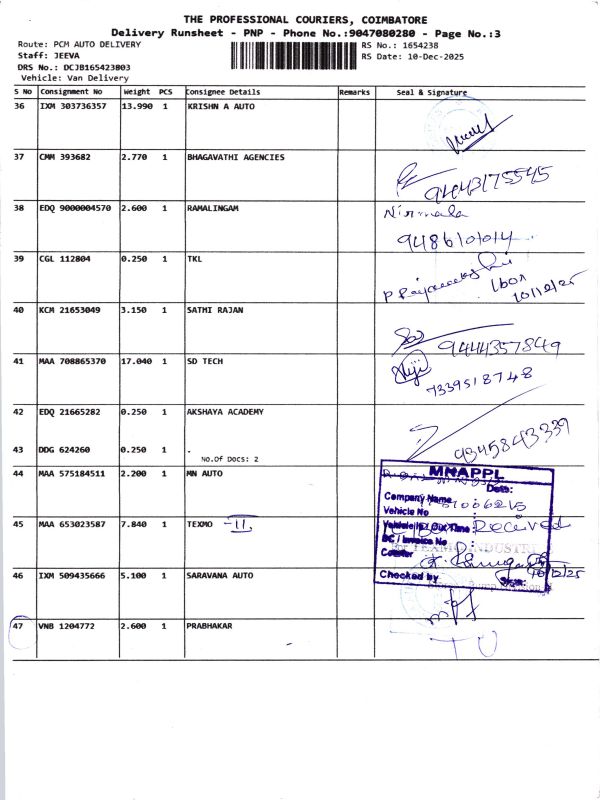 THE PROFESSIONAL COURIERS, COIMBATORE
Delivery Runsheet - PNP - Phone No.:9047080280 - Page No.:3
Route: PCM AUTO DELIVERY
RS No.: 1654238
Staff: JEEVA
RS Date: 10-Dec-2025
DRS No.: DCJB165423803
Vehicle: Van Delivery
S NO Consignment No Weight PCS Consignee Details Remarks Seal & Signature
36 IXM 303736357 13.990 1 KRISHN A AUTO
37 CMM 393682 2.770 1 BHAGAVATHI AGENCIES
9443175545
38 EDQ 9000004570 2.600 1 RAMALINGAM
Nirmala
9486101014
39 CGL 112804 0.250 1 TKL
10/12/25
40 KCM 21653049 3.150 1 SATHI RAJAN
9444357849
41 MAA 708865370 17.040 1 SD TECH
7339518748
42 EDQ 21665282 0.250 1 AKSHAYA ACADEMY
9345843339
43 DDG 624260 0.250 1 .
No.Of Docs: 2
44 MAA 575184511 2.200 1 MN AUTO
MNAPPL
Date:
Company Name
Vehicle No
Vehicle In/Out Time
DC / Invoice No
Courier
Checked by
Sign:
45 MAA 653023587 7.840 1 TEXMO -II,
Received
10/12/25
46 IXM 509435666 5.100 1 SARAVANA AUTO
47 VNB 1204772 2.600 1 PRABHAKAR